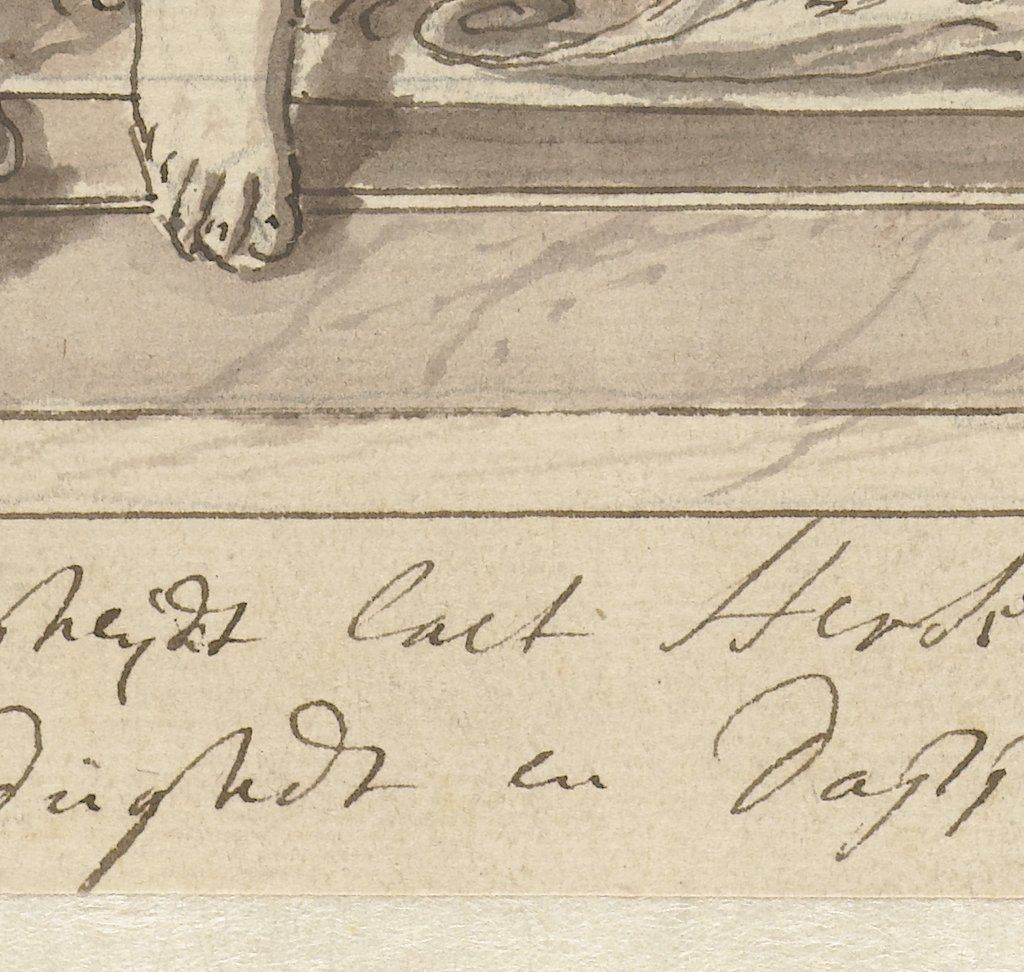 heijdt laet Herk
dughdt en Dapp